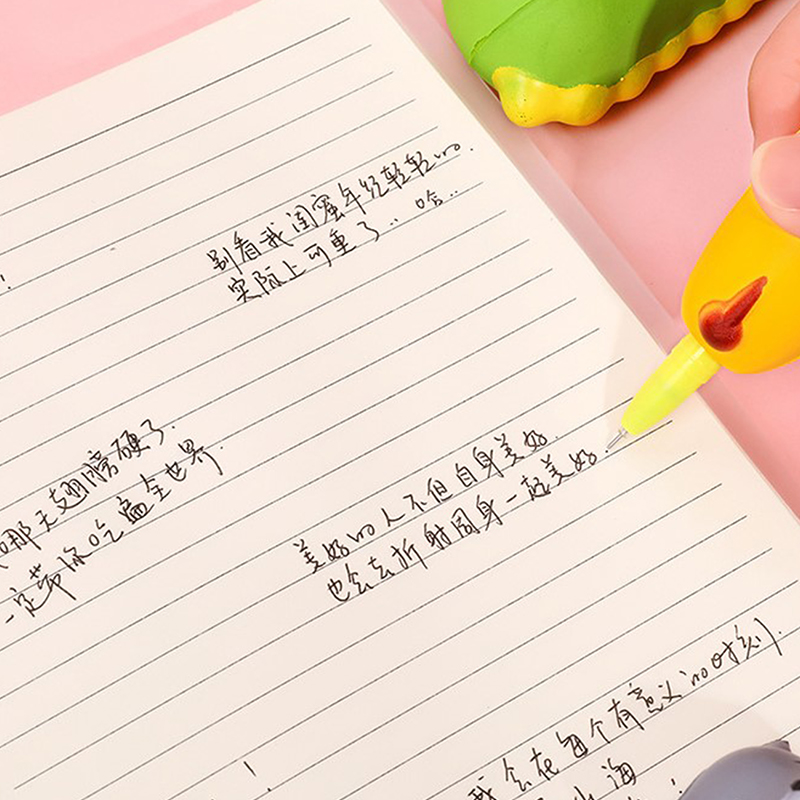 别看我闺蜜年纪轻轻的.
实际上可重了.. 哈..
!
那天翅膀硬了.
一定带你吃遍全世界.
美好的人不但自身美好.
也会去折射周身一起美好.
我会在每个有意义的时刻.
海
!
!